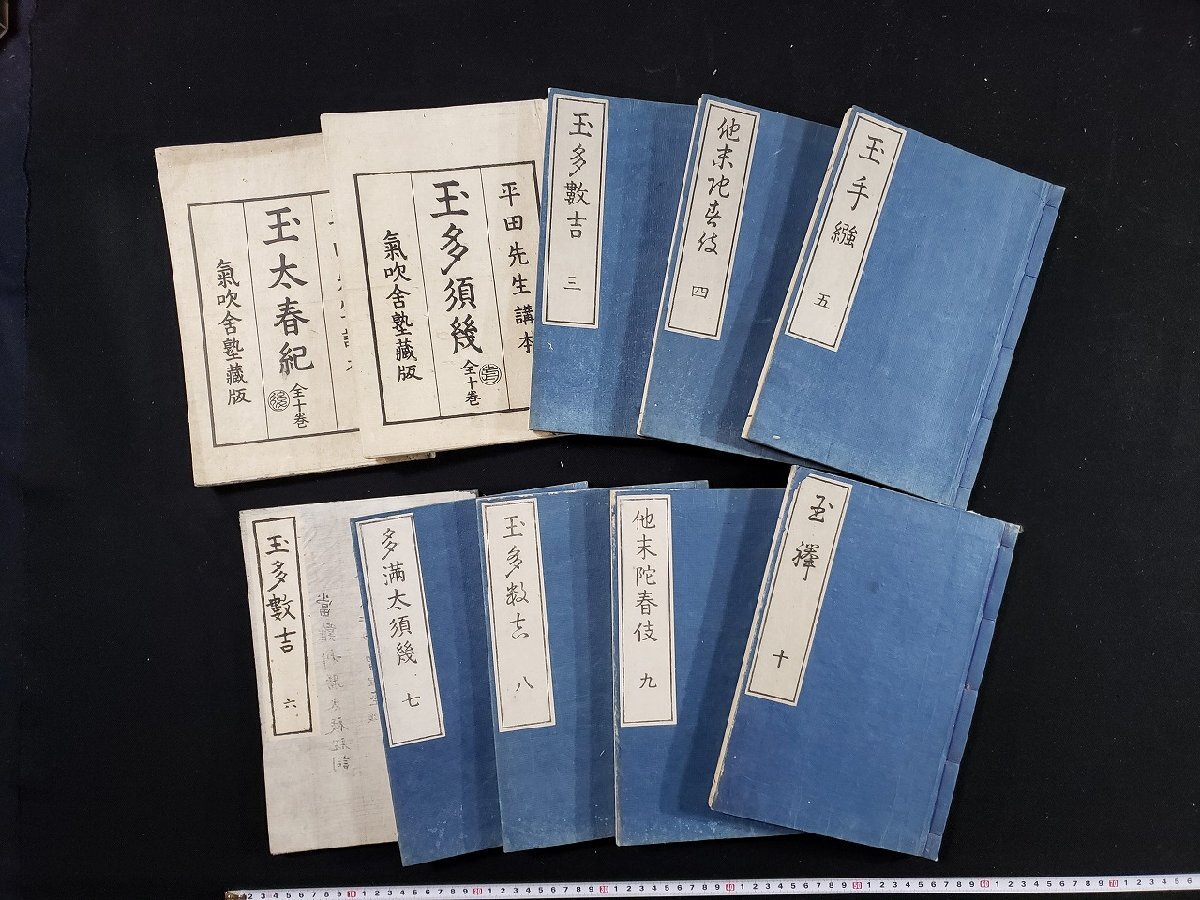 玉太春紀
全十巻
氣吹舍塾藏版
平田先生講本
玉多須幾
全十巻
氣吹舍塾藏版
玉多數吉
三
他末陀春伎
四
玉手繦
五
玉多數吉
六
多滿太須幾
七
玉多数吉
八
他末陀春伎
九
玉襷
十